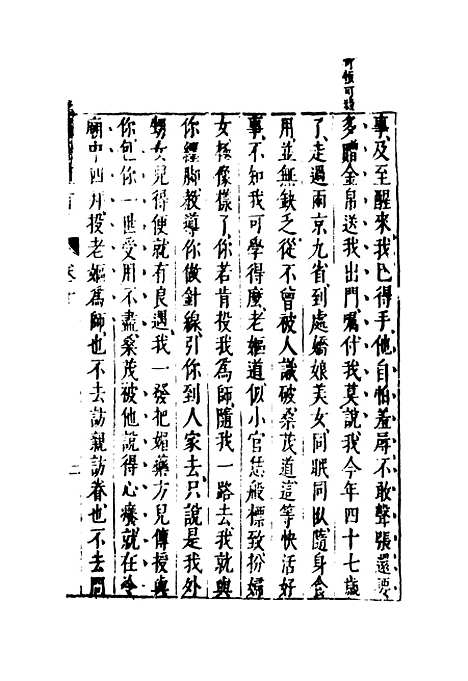 可恨可殺
事及至醒來我已得手他自怕羞辱不敢聲張還要
多贈金帛送我出門囑付我莫說我今年四十七歲
了走過兩京九省到處嬌娘美女同眠同臥隨身食
用並無缺乏從不曾被人識破桑茂道這等快活好
事不知我可學得麼老嫗道似小官恁般標致扮婦
女極像樣了你若肯投我爲師隨我一路去我就與
你纏脚教導你做針線引你到人家去只說是我外
甥女兒得便就有良遇我一發把媚藥方兒傳授與
你包你一世受用不盡桑茂被他說得心癢就在冷
廟中四拜投老嫗爲師也不去訪親訪眷也不去問
卷十
二